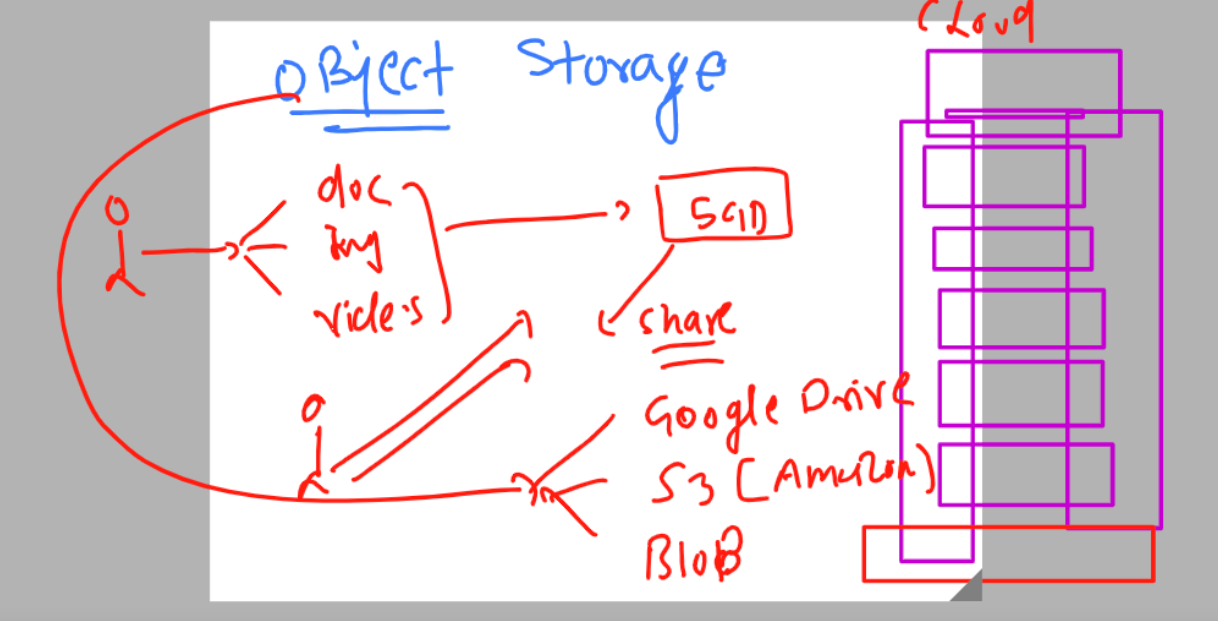 Cloud
Object Storage
doc
img
videos
share
Google Drive
S3 (Amazon)
BloB